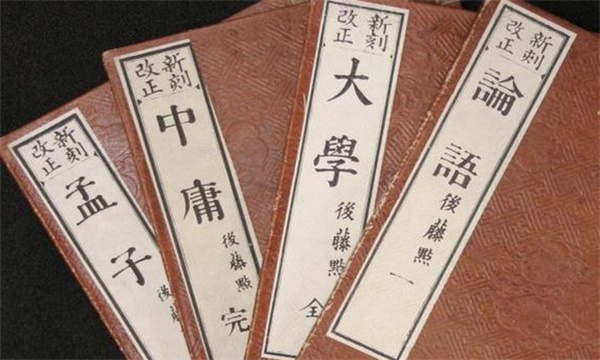 新刻
改正
論語 後藤點 一
新刻
改正
大學 後藤點 全
新刻
改正
中庸 後藤點 完
新刻
改正
孟子 後藤